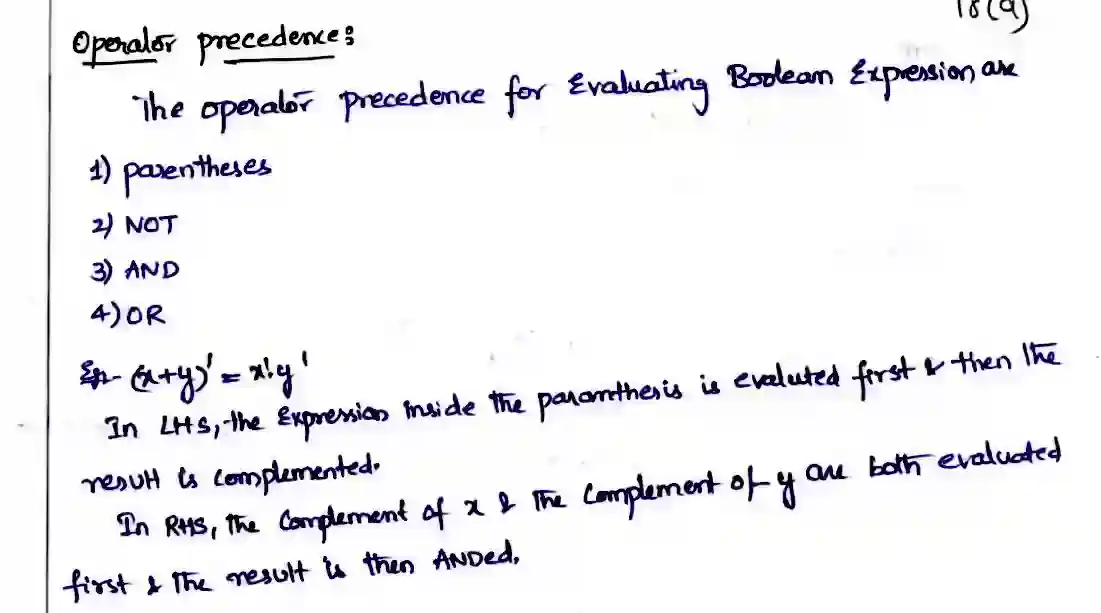 18(a)
Operator precedence:
The operator precedence for Evaluating Boolean Expression are
1) parentheses
2) NOT
3) AND
4) OR
Ex:- (x+y)' = x'.y'
In LHS, the Expression inside the paramthesis is evaluted first & then the
result is complemented.
In RHS, the Complement of x & the Complement of y are both evaluated
first & the result is then ANDed.